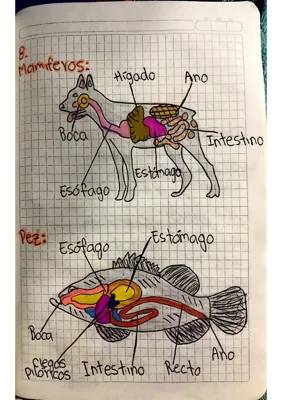 8.
Mamíferos:
Hígado
Ano
Boca
Intestino
Estómago
Esófago
Pez:
Esófago
Estómago
Boca
Ciegos
Pilóricos
Intestino
Recto
Ano